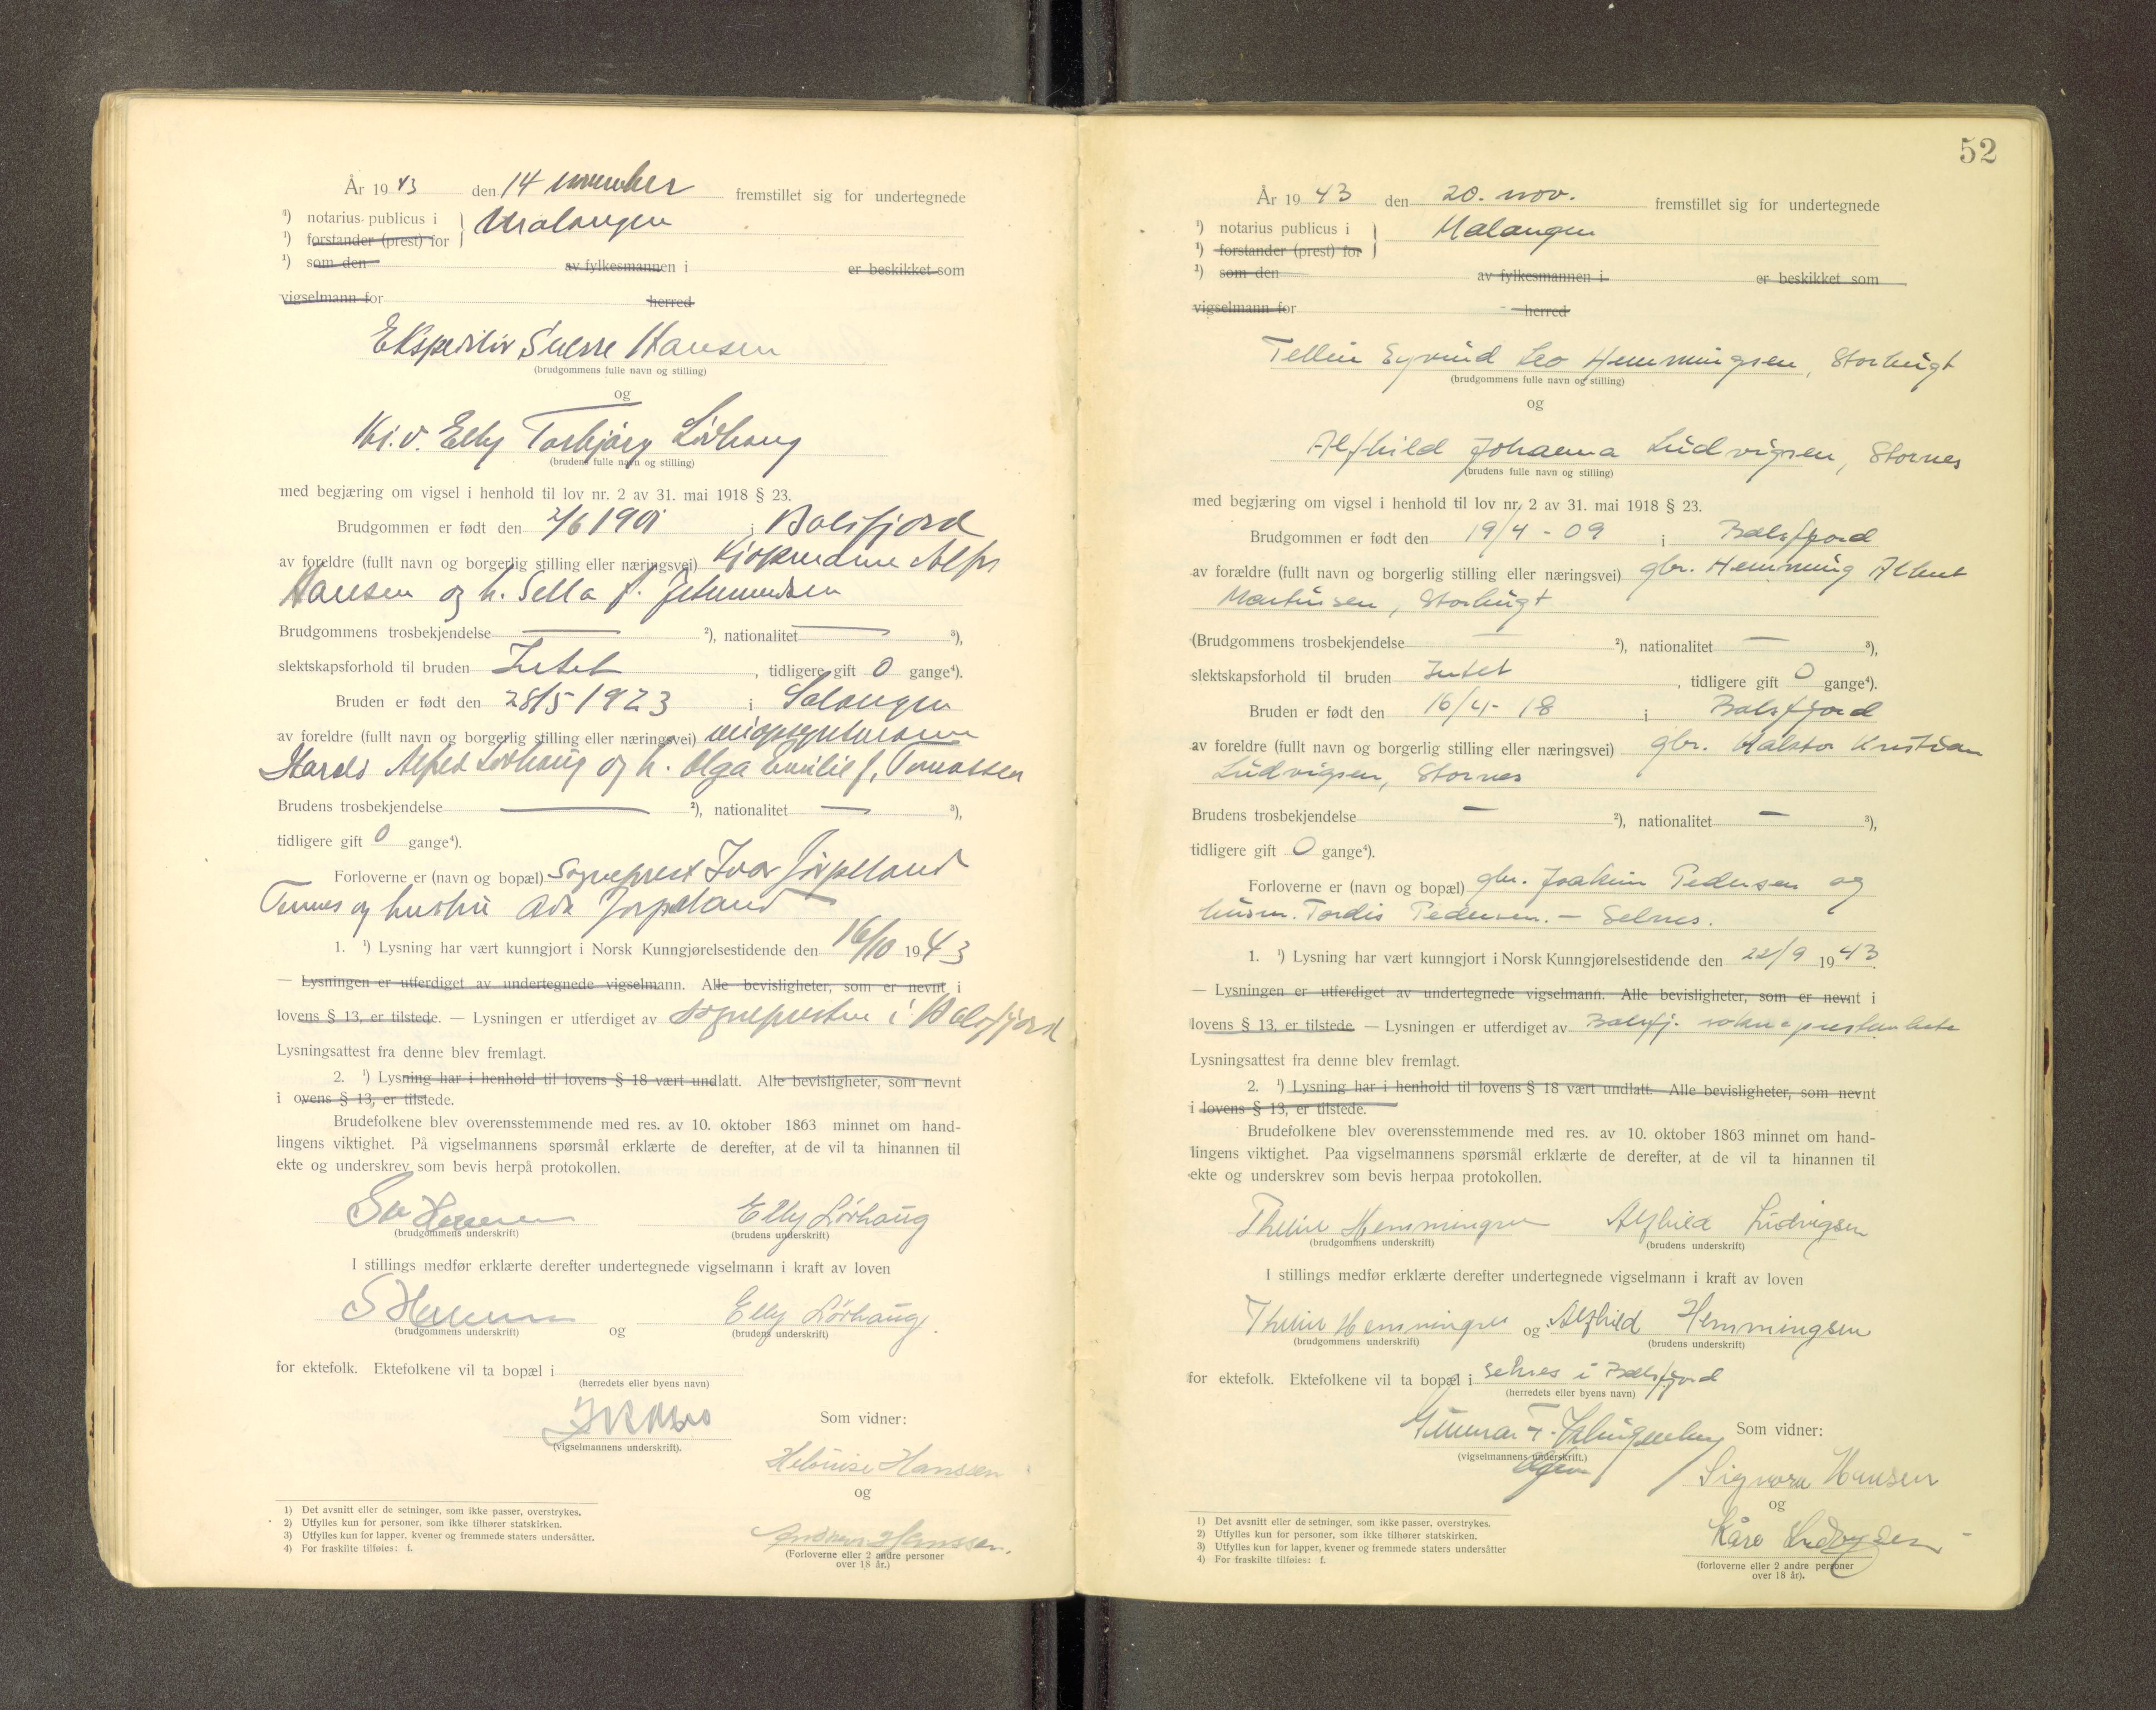 År 1943 den 14 november fremstillet sig for undertegnede
¹) notarius publicus i } Malangen
¹) forstander (prest) for
¹) som den av fylkesmannen i er beskikket som
vigselmann for herred
Ekspeditør Sverre Hansen
(brudgommens fulle navn og stilling)
og
Elly Torbjørg Lövhaug
(brudens fulle navn og stilling)
med begjæring om vigsel i henhold til lov nr. 2 av 31. mai 1918 § 23.
Brudgommen er født den 2/6 1901 i Balsfjord
av foreldre (fullt navn og borgerlig stilling eller næringsvei) Kjøpmann Alfr
Hansen og h. Sella f.
Brudgommens trosbekjendelse — ²), nationalitet — ³),
slektskapsforhold til bruden Intet, tidligere gift 0 gange⁴).
Bruden er født den 28/5 1923 i Salangen
av foreldre (fullt navn og borgerlig stilling eller næringsvei)
Harald Alfred Lövhaug og h. Olga Emilie f. Tomassen
Brudens trosbekjendelse — ²), nationalitet — ³),
tidligere gift 0 gange⁴).
Forloverne er (navn og bopæl) Sogneprest Ivar Jörpeland
Tennes og hustru Ada Jörpeland
1. ¹) Lysning har vært kunngjort i Norsk Kunngjørelsestidende den 16/10 1943
— Lysningen er utferdiget av undertegnede vigselmann. Alle bevisligheter, som er nevnt i
lovens § 13, er tilstede. — Lysningen er utferdiget av sognepresten i Balsfjord
Lysningsattest fra denne blev fremlagt.
2. ¹) Lysning har i henhold til lovens § 18 vært undlatt. Alle bevisligheter, som nevnt
i ovens § 13, er tilstede.
Brudefolkene blev overensstemmende med res. av 10. oktober 1863 minnet om hand-
lingens viktighet. På vigselmannens spørsmål erklærte de derefter, at de vil ta hinannen til
ekte og underskrev som bevis herpå protokollen.
Sv Hansen Elly Lövhaug
(brudgommens underskrift) (brudens underskrift)
I stillings medfør erklærte derefter undertegnede vigselmann i kraft av loven
S Hansen og Elly Lövhaug.
(brudgommens underskrift) (brudens underskrift)
for ektefolk. Ektefolkene vil ta bopæl i
(herredets eller byens navn)
(vigselmannens underskrift).
Som vidner:
Helouise Hanssen
og
Hanssen.
(Forloverne eller 2 andre personer
over 18 år.)
1) Det avsnitt eller de setninger, som ikke passer, overstrykes.
2) Utfylles kun for personer, som ikke tilhører statskirken.
3) Utfylles kun for lapper, kvener og fremmede staters undersåtter.
4) For fraskilte tilføies: f.
52
År 1943 den 20. nov. fremstillet sig for undertegnede
¹) notarius publicus i } Malangen
¹) forstander (prest) for
¹) som den av fylkesmannen i er beskikket som
vigselmann for herred
Tellin Eyvind Leo Hemmingsen, Storbugt
(brudgommens fulle navn og stilling)
og
Alfhild Johanna Ludvigsen, Stornes
(brudens fulle navn og stilling)
med begjæring om vigsel i henhold til lov nr. 2 av 31. mai 1918 § 23.
Brudgommen er født den 19/4 - 09 i Balsfjord
av forældre (fullt navn og borgerlig stilling eller næringsvei) gbr. Hemming Albert
Martinsen, Storbugt
(Brudgommens trosbekjendelse — ²), nationalitet — ³),
slektskapsforhold til bruden Intet, tidligere gift 0 gange⁴).
Bruden er født den 16/4 - 18 i Balsfjord
av foreldre (fullt navn og borgerlig stilling eller næringsvei) gbr. Halstor Kristian
Ludvigsen, Stornes
Brudens trosbekjendelse — ²), nationalitet — ³),
tidligere gift 0 gange⁴).
Forloverne er (navn og bopæl) gbr. Joakim Pedersen og
husm. Tordis Pedersen. — Selnes.
1. ¹) Lysning har vært kunngjort i Norsk Kunngjørelsestidende den 22/9 1943.
— Lysningen er utferdiget av undertegnede vigselmann. Alle bevisligheter, som er nevnt i
lovens § 13, er tilstede — Lysningen er utferdiget av Balsfj. sokneprestembete
Lysningsattest fra denne blev fremlagt.
2. ¹) Lysning har i henhold til lovens § 18 vært undlatt. Alle bevisligheter, som nevnt
i lovens § 13, er tilstede.
Brudefolkene blev overensstemmende med res. av 10. oktober 1863 minnet om hand-
lingens viktighet. Paa vigselmannens spørsmål erklærte de derefter, at de vil ta hinannen til
ekte og underskrev som bevis herpaa protokollen.
Hemmingsen Alfhild Ludvigsen
(brudgommens underskrift) (brudens underskrift)
I stillings medfør erklærte derefter undertegnede vigselmann i kraft av loven
Hemmingsen og Alfhild Hemmingsen
(brudgommens underskrift) (brudens underskrift)
for ektefolk. Ektefolkene vil ta bopæl i Selnes i Balsfjord
(herredets eller byens navn)
Gunnar F. Klingenberg
(vigselmannens underskrift.)
Som vidner:
Signora Hansen
og
Kåre Ludvigsen
(forloverne eller 2 andre personer
over 18 år).
1) Det avsnitt eller de setninger, som ikke passer, overstrykes.
2) Utfylles kun for personer, som ikke tilhører statskirken.
3) Utfylles kun for lapper, kvener og fremmede staters undersåtter
4) For fraskilte tilføies: f.